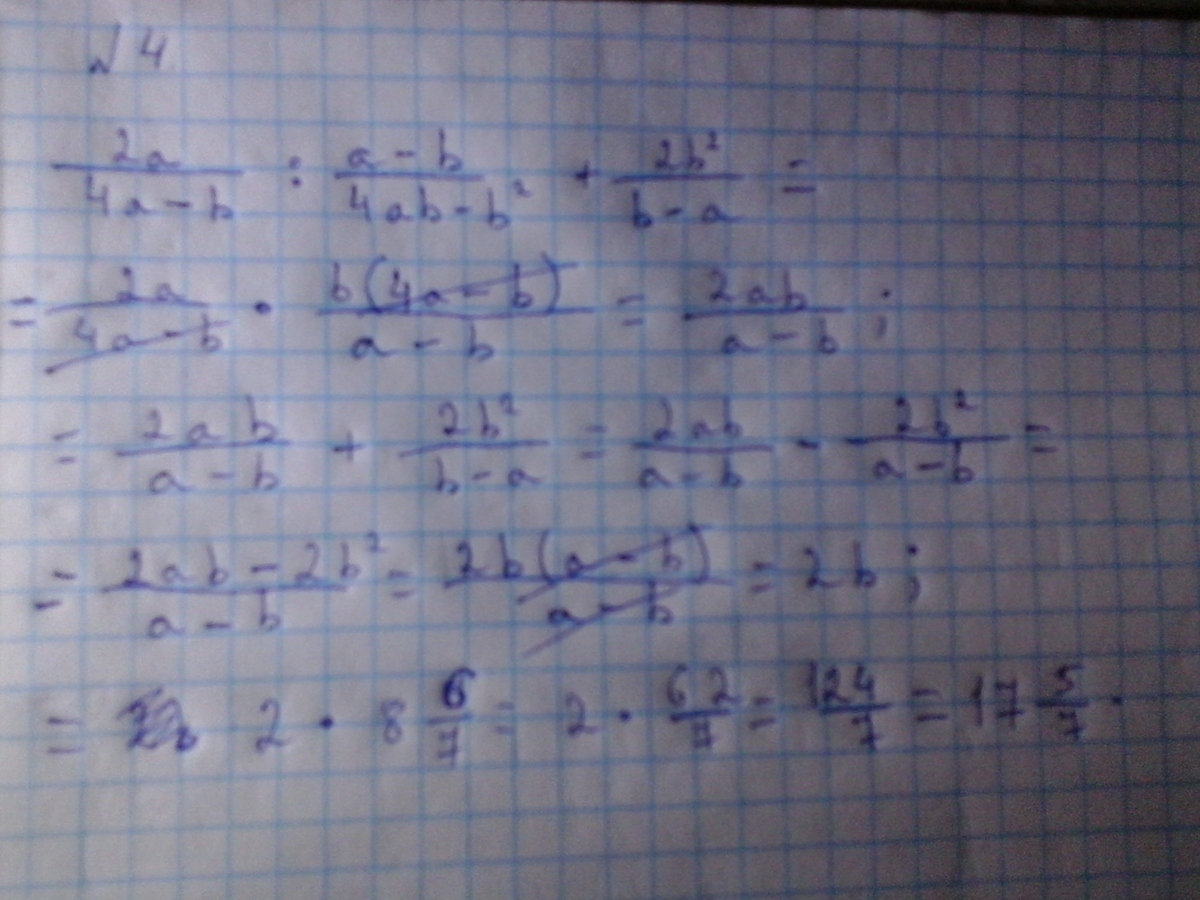 № 4
2a/(4a-b) : (a-b)/(4ab-b²) + 2b²/(b-a) =
= 2a/(4a-b) · b(4a-b)/(a-b) = 2ab/(a-b) ;
= 2ab/(a-b) + 2b²/(b-a) = 2ab/(a-b) - 2b²/(a-b) =
= (2ab-2b²)/(a-b) = 2b(a-b)/(a-b) = 2b ;
= 2 · 8 6/7 = 2 · 62/7 = 124/7 = 17 5/7 .